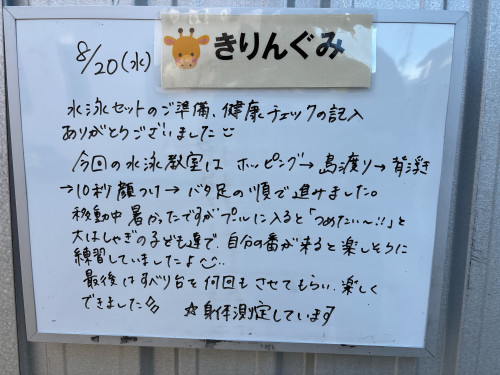 8/20(水)
きりんぐみ
水泳セットのご準備、健康チェックの記入
ありがとうございました
今回の水泳教室は ホッピング→島渡り→背浮き
→10秒顔つけ→バタ足の順で進みました。
移動中暑かったですがプールに入ると「つめたい〜!!」と
大はしゃぎの子ども達で、自分の番が来ると楽しそうに
練習していましたよ
最後はすべり台を何回もさせてもらい、楽しく
できました
☆身体測定しています